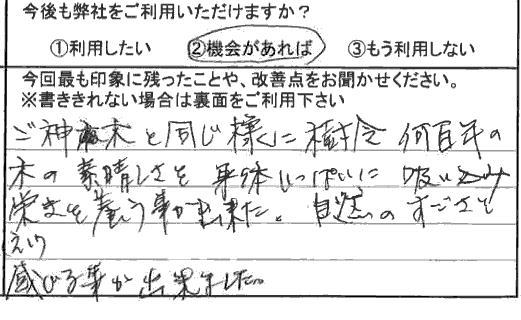 今後も弊社をご利用いただけますか？
①利用したい ②機会があれば ③もう利用しない
今回最も印象に残ったことや、改善点をお聞かせください。
※書ききれない場合は裏面をご利用下さい
ご神木と同じ様に樹令何百年の
木の素晴しさを身体いっぱいに吸い込み
栄文を養う事が出来た。自然のすごさを
感じる事が出来ました。